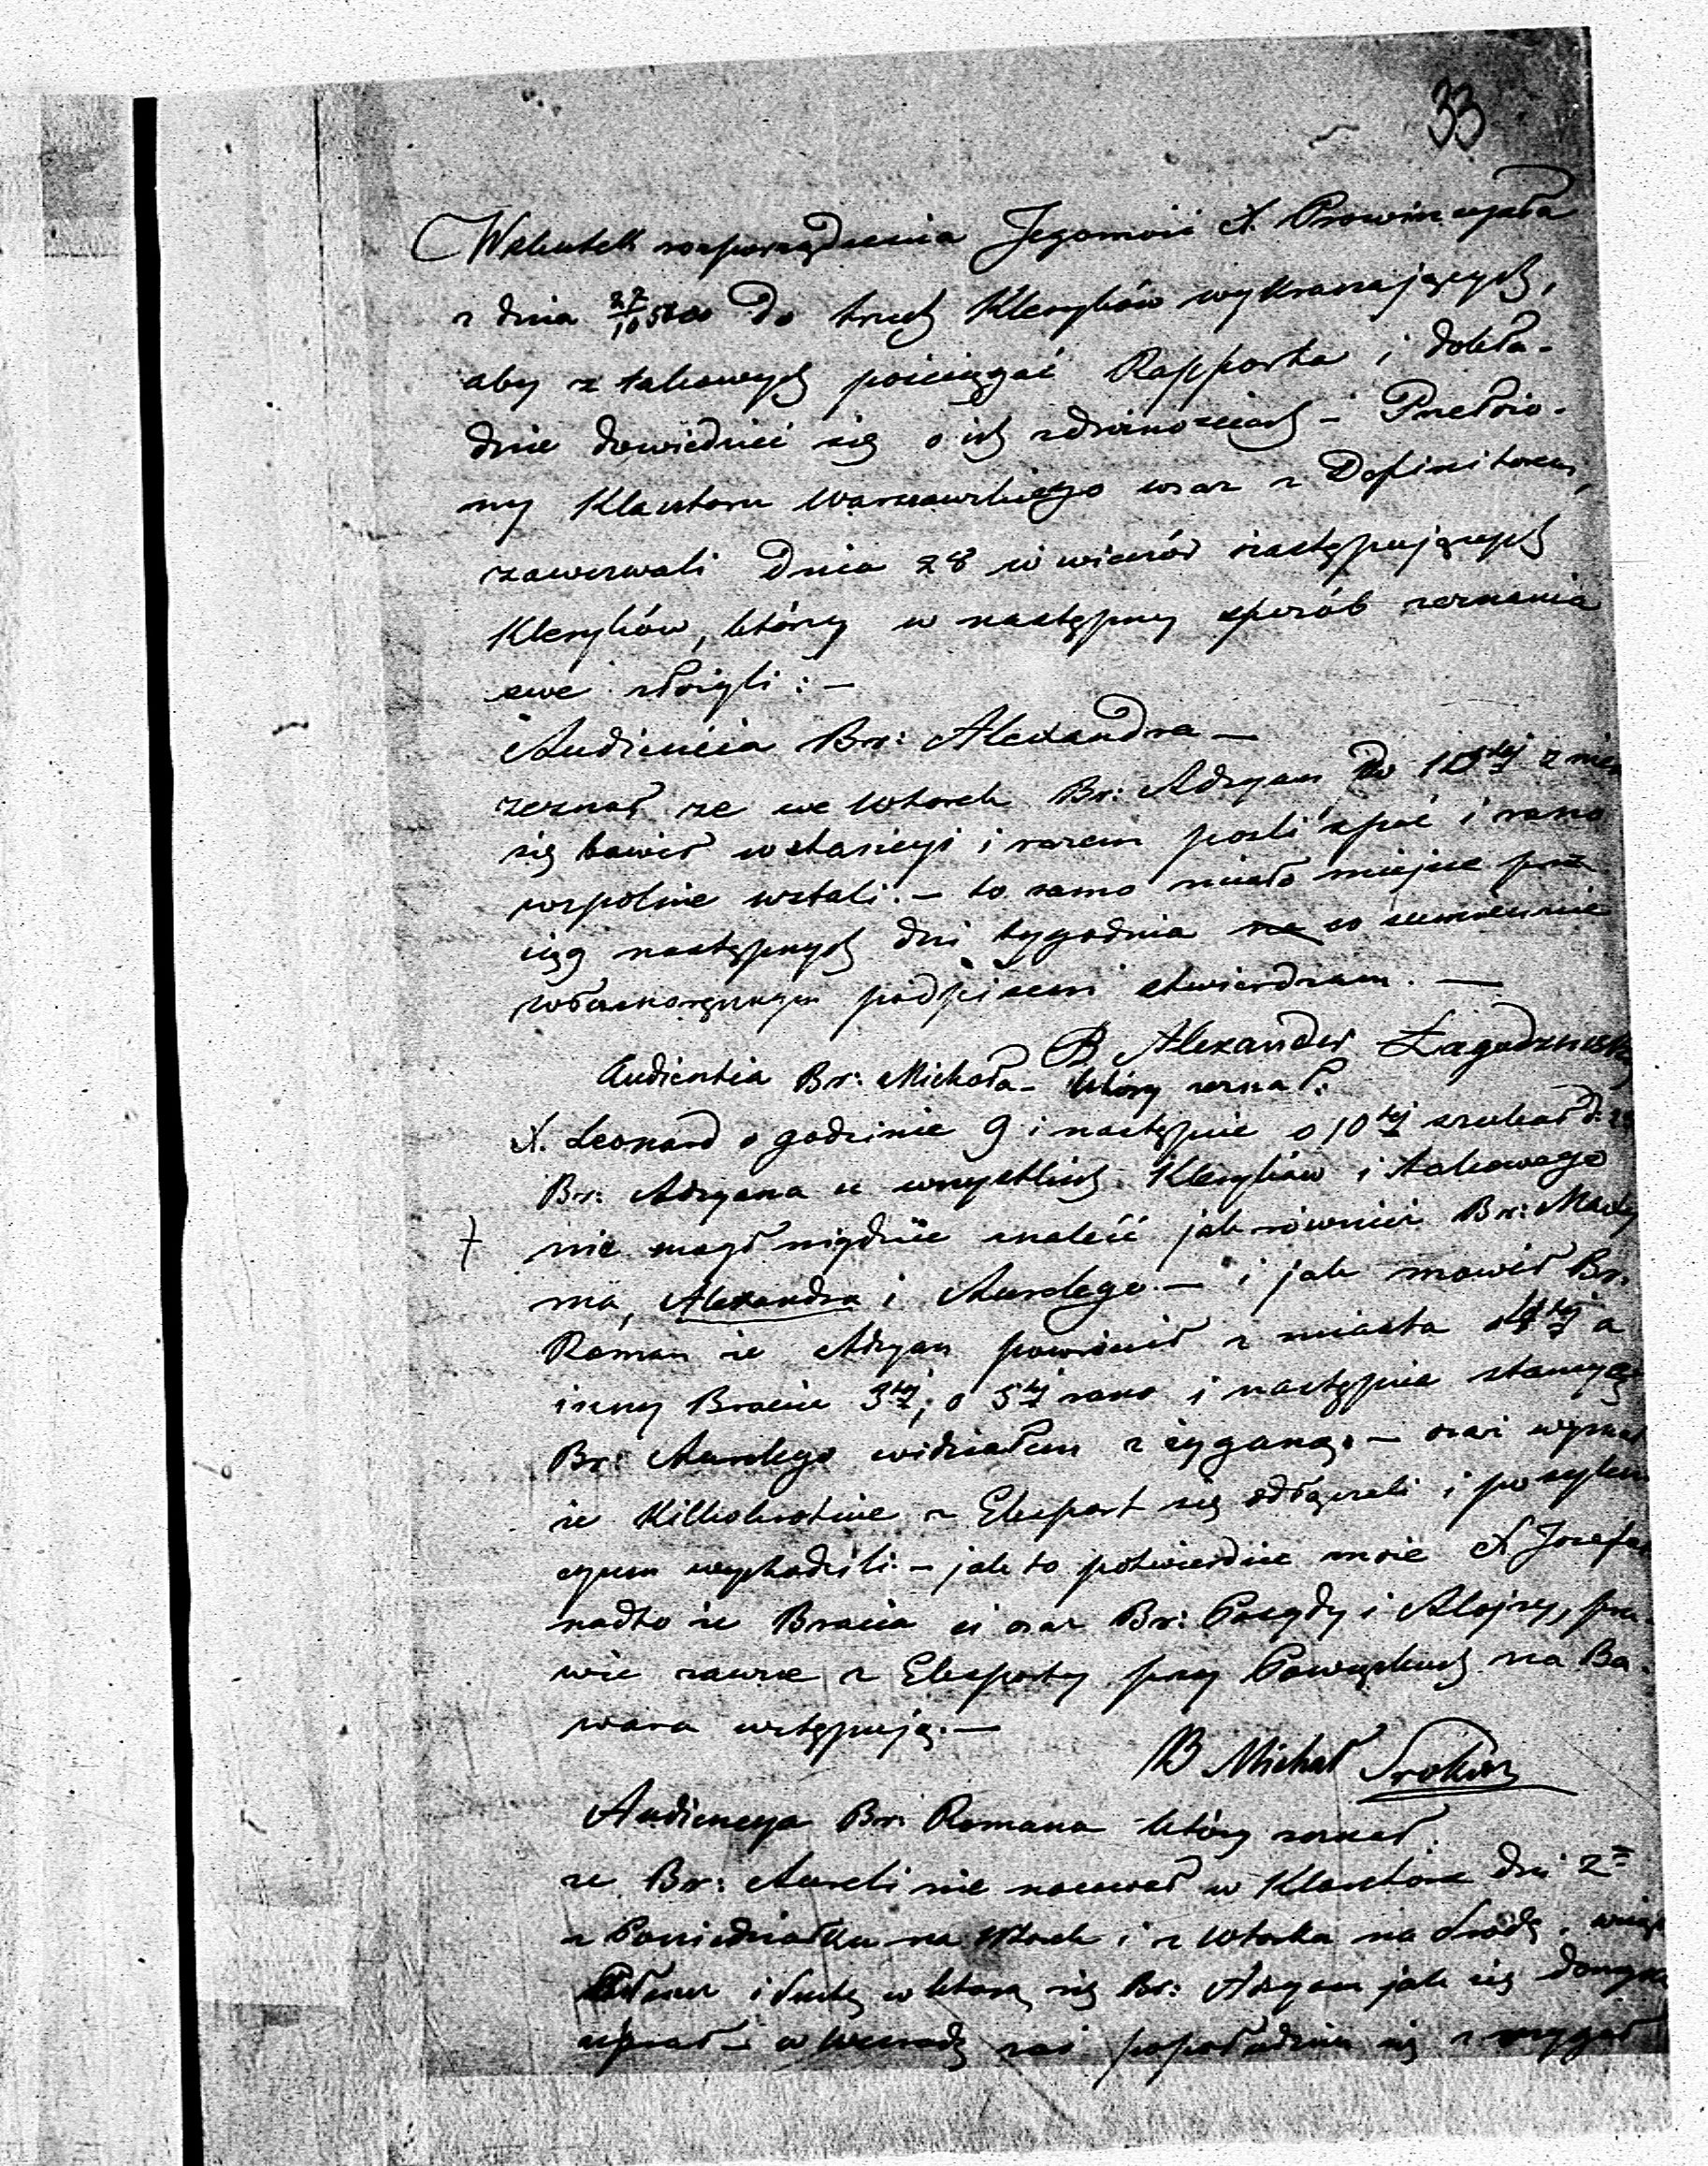 33
Wskutek rozporządzenia Jegomość X. Prowincyała
z dnia 27/10 do trzech Kleryków wykraczających,
aby z takowych pościągać Rapporta i dokła-
dnie dowiedzieć się o ich zdrożnościach – Przełożo-
ny Klasztoru Warszawskiego wraz z Definitorem,
zawezwali Dnia 28 w wieczór następujących
Kleryków, którzy w następny sposób zeznania
swe złożyli: –
Audiencia Br: Alexandra –
zeznał ze we Wtorek Br: Adryan do 10tej z nim
się bawił w stancyi i razem poszli spać i rano
wspólnie wstali. – to samo miało miejsce prze
ciąg następnych dni tygodnia co sumiennie
własnoręcznym podpisem stwierdzam. –
B Alexander Łagodzinski
Audientia Br: Michała – który zeznał:
X. Leonard o godzinie 9 i następnie o 10tej szukał d:
Br: Adryana u wszystkich Kleryków i takowego
nie mógł nigdzie znaleść jak również Br:
ma, Alexandra i Aurelego – i jak mowił Br.
Roman że Adryan powrócił z miasta a
inny Bracie 3tej, o 5tej rano i następnie stancyę
Br: Aurelego widziałem z cyganą. – oraz wyznał
że Kilkokrotnie z Eksport się odłączali i po cylem
cyum wychodzili. – jak to potwierdzić może X Jozefat
nadto że Bracia ci oraz Br: Possydy i Alojzy, pra-
wie zawsze z Eksporty przy Powązkach na Ba-
wara wstępują. –
B Michał Srokosz
Audiencya Br: Romana który zeznał.
że Br: Aureli nie nocował w Klasztorze dni 2
z Poniedziałku na Wtorek i z Wtorku na Srodę,
i Sutę w ktorą się Br: Adryan jak się
upiał – w Srodę zaś popołudniu się z